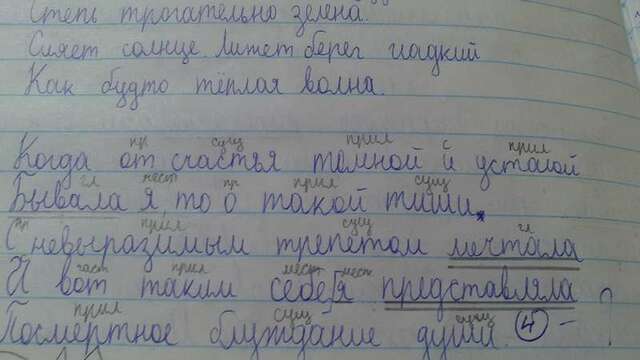 Степь трогательно зелена.
Сияет солнце. Лижет берег гладкий
Как будто тёплая волна.
пр сущ прил с прил
Когда от счастья томной и усталой
гл мест пр прил сущ
Бывала я то о такой тиши
пр прил сущ гл
С невыразимым трепетом мечтала
част прил мест мест
И вот таким себе я представляла
прил сущ сущ
Посмертное блуждание души. 4 - ?